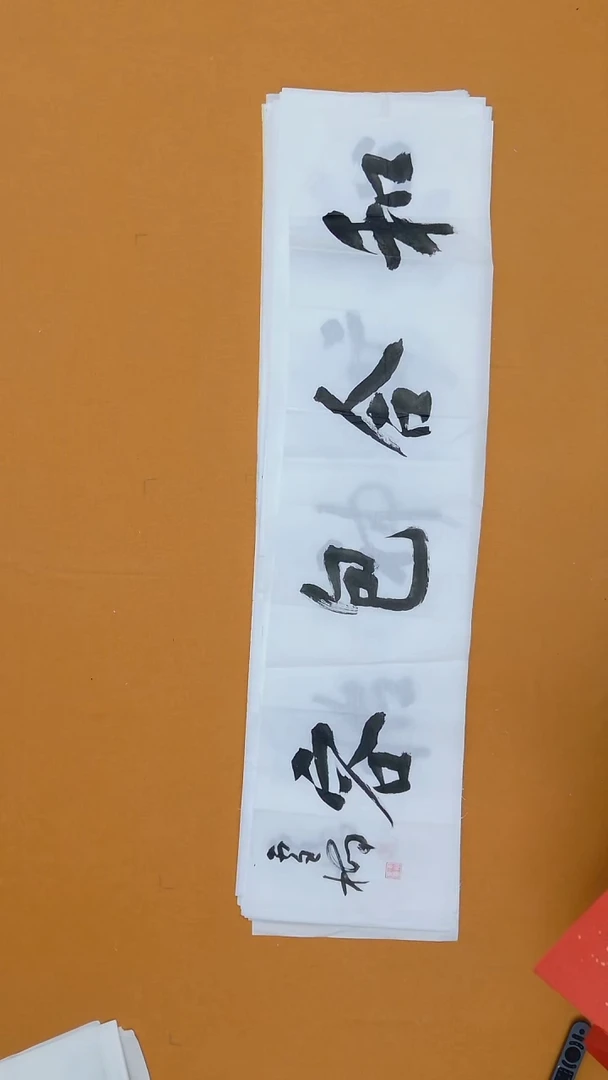 和合包容